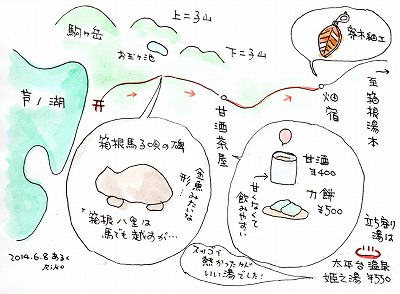 上二子山
駒ヶ岳
お玉ヶ池
下二子山
寄木細工
芦ノ湖
至箱根湯本
畑宿
甘酒茶屋
箱根馬子唄の碑
金魚みたいな
形!…
"箱根八里は
馬でも越すが…
甘酒
¥400
甘くなくて
飲みやすい
力餅
¥500
立ち寄り
湯は
六平台温泉
姫之湯 ¥550
スッゴイ
熱かったけど
いい湯でした!
2014.6.8 あるく
kiko